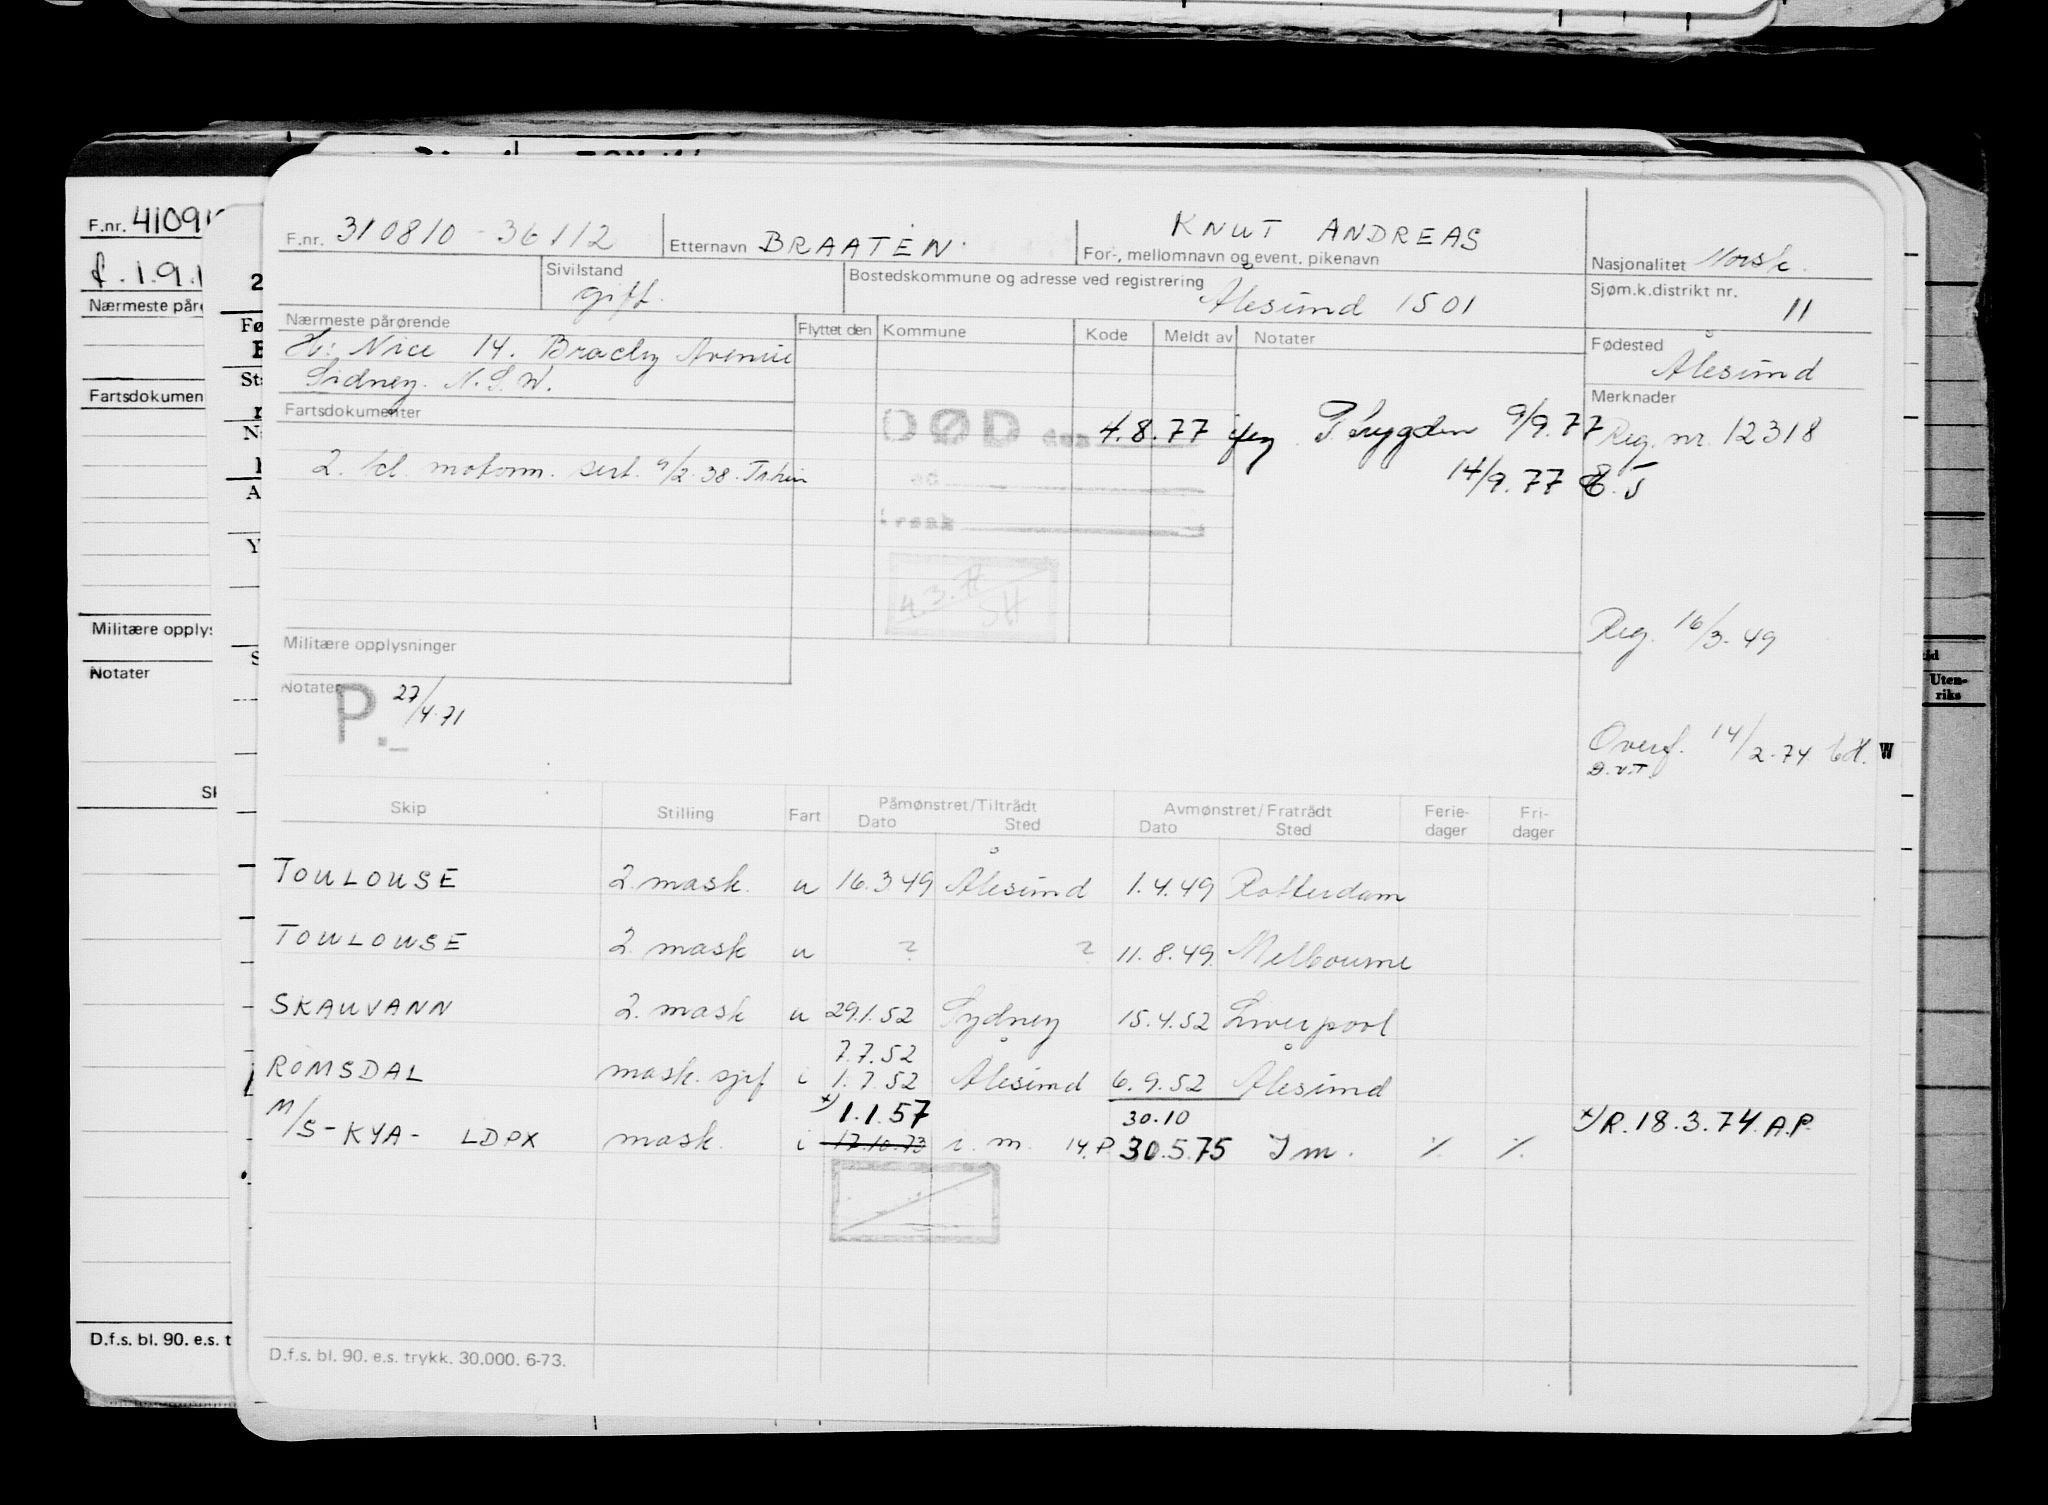 F.nr. 310810-36112 Etternavn BRAATEN For-, mellomnavn og event. pikenavn KNUT ANDREAS Nasjonalitet Norsk.
Sivilstand gift. Bostedskommune og adresse ved registrering Ålesund 1501 Sjøm.k.distrikt nr. 11
Nærmeste pårørende Flyttet den Kommune Kode Meldt av Notater Fødested Ålesund
H: Nice 14. Avenue
Sidney. N.S.W.
Merknader
Fartsdokumenter DØD den 4.8.77 P.trygden 9/9.77 Reg. nr. 12318
14/9.77
2. kl. sert. 9/2.38.
4.3.
SH
Reg. 16/3-49
Militære opplysninger
Notater P. 27/4.71
Overf. 14/2.74 W
D.v.T.
Skip Stilling Fart Påmønstret/Tiltrådt Dato Sted Avmønstret/Fratrådt Dato Sted Ferie-dager Fri-dager
TOULOUSE 2. mask. u 16.3.49 Ålesund 1.4.49 Rotterdam
TOULOUSE 2. mask u ? ? 11.8.49 Melbourne
SKAUVANN 2. mask u 29.1.52 Sydney 15.4.52 Liverpool
7.7.52
ROMSDAL mask. sjef i 1.7.52 Ålesund 6.9.52 Ålesund
x) 1.1.57 30.10 x) R. 18.3.74. A.P.
M/S - KYA - LDPX mask. i 17.10.73 i. m. 14.P 30.5.75 Im. % %
D.f.s. bl. 90. e.s. trykk. 30.000. 6-73.
F.nr. 4109
f. 1.9.1
Nærmeste påre
Fartsdokumen
Militære opplys
Notater
Sk
D.f.s. bl. 90. e.s. t
Uten-
riks